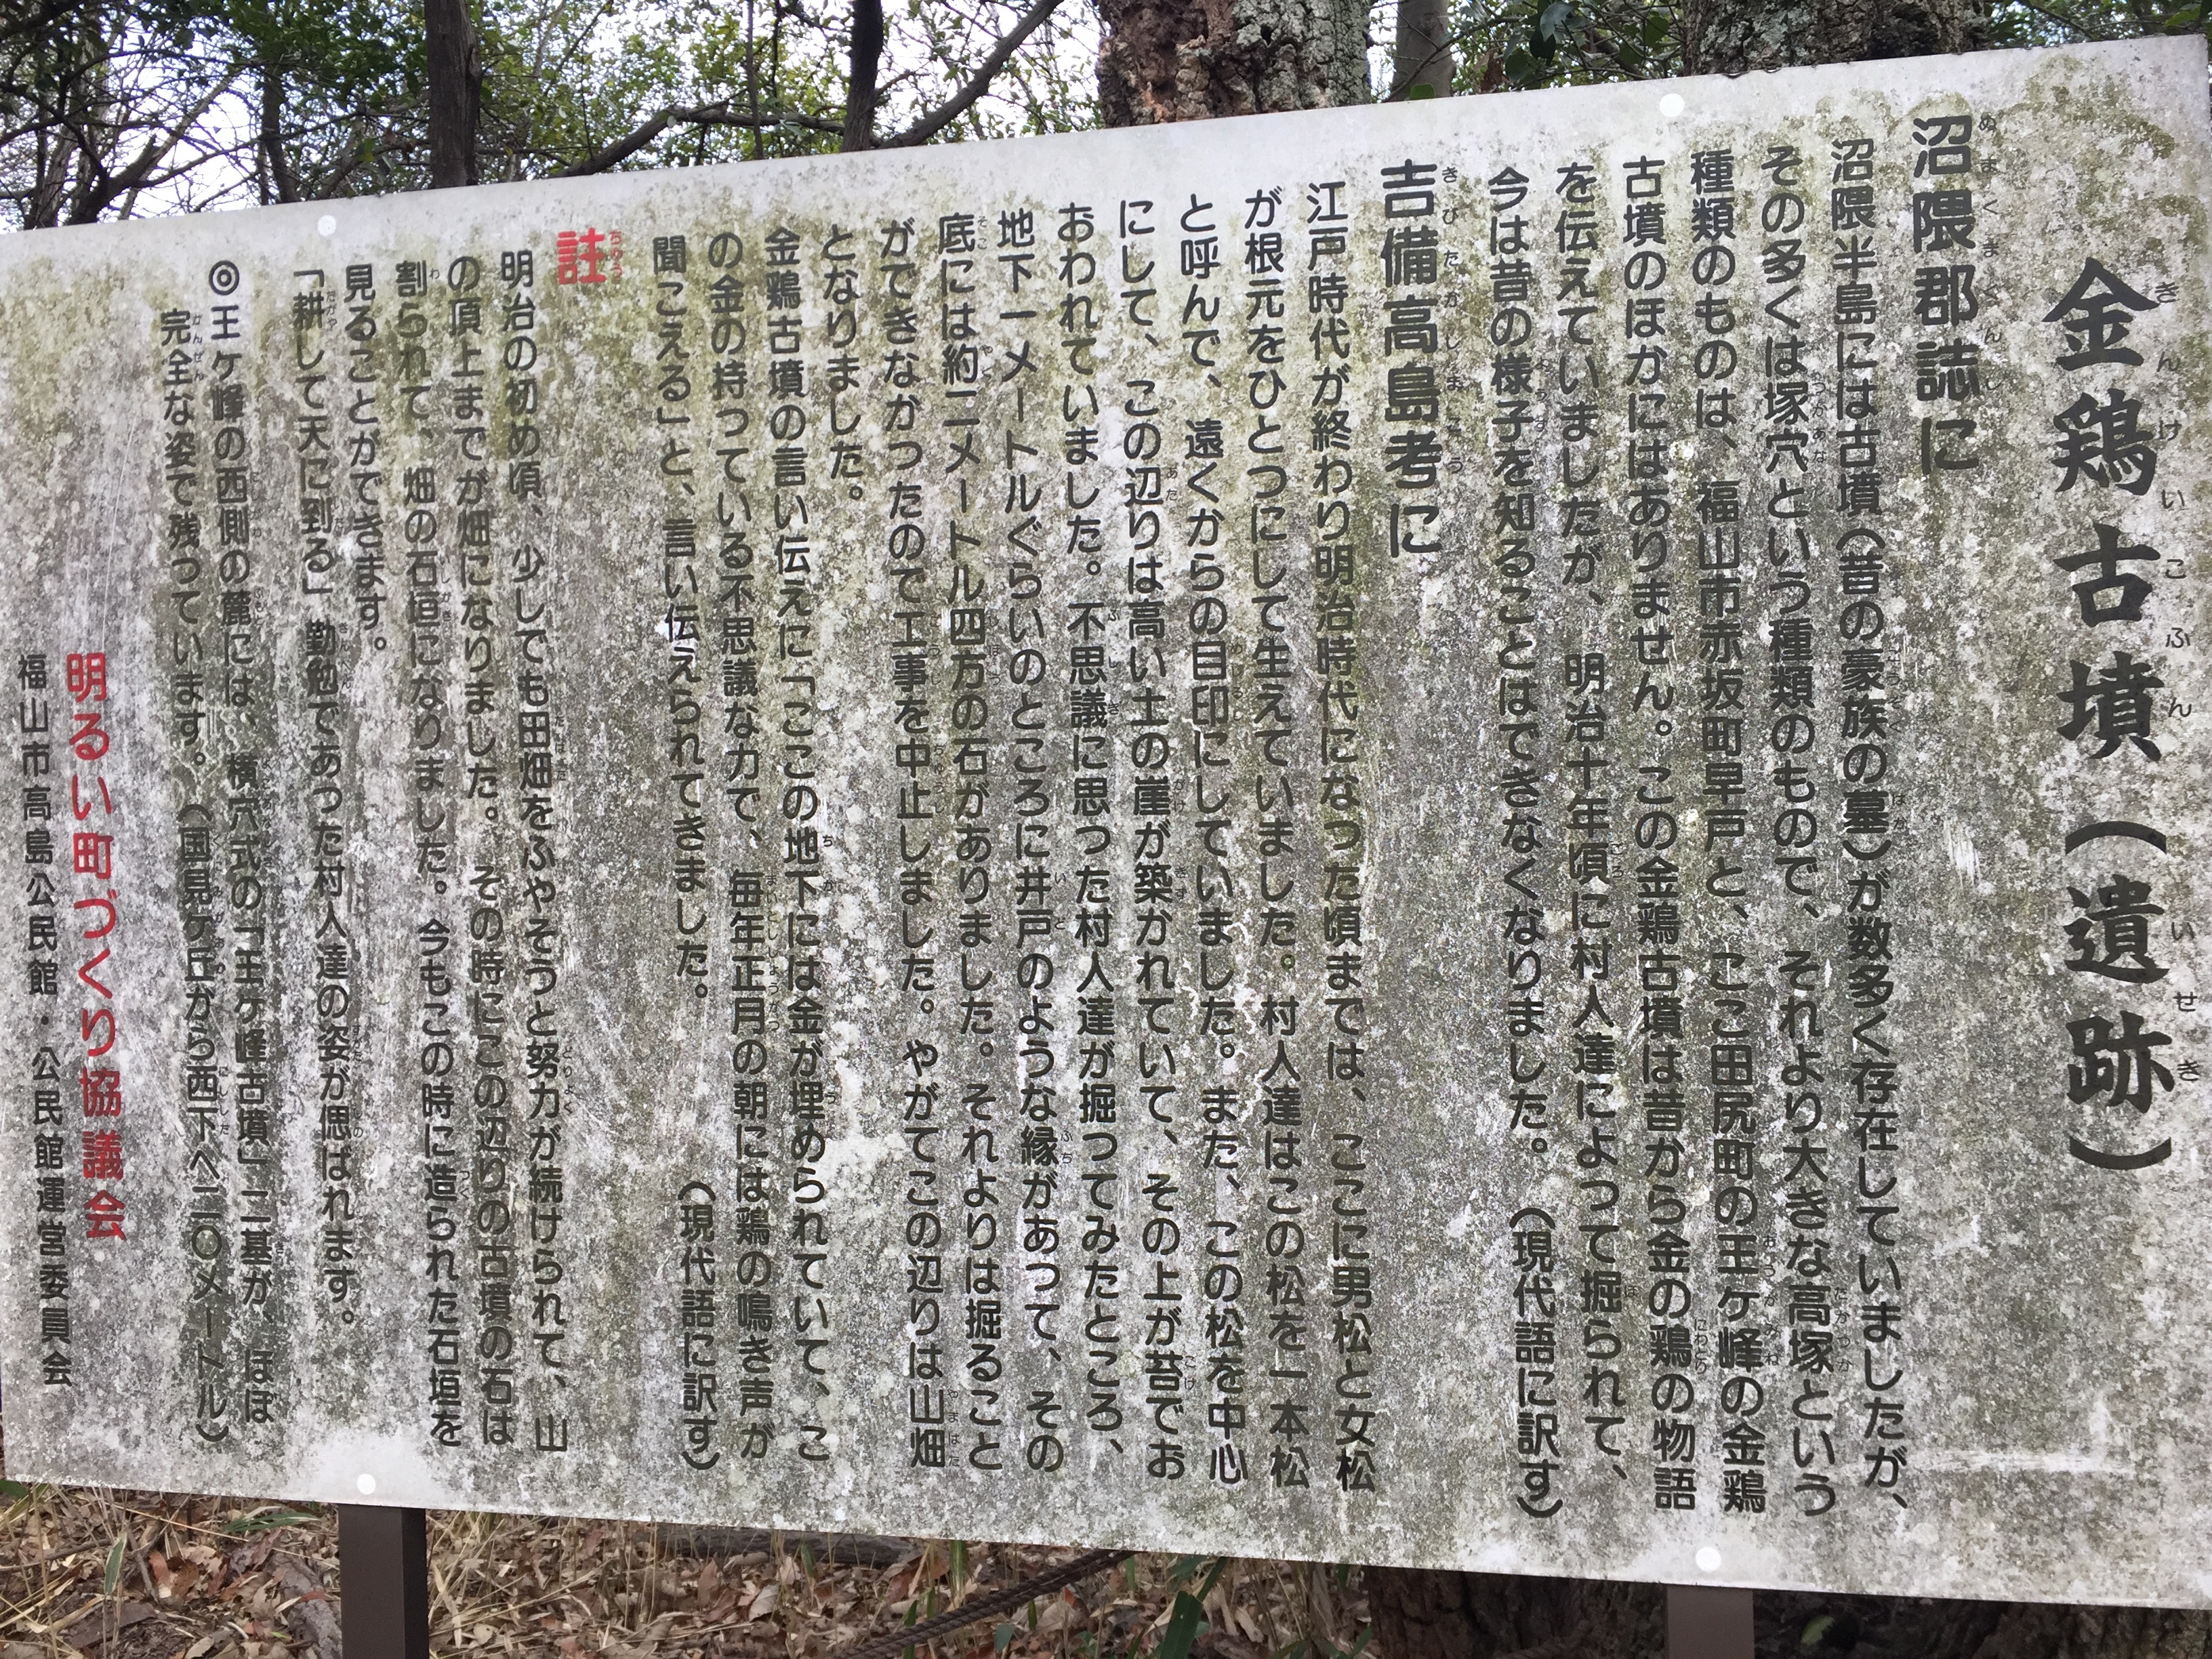 金鶏古墳（遺跡）
沼隈郡誌に
沼隈半島には古墳（昔の豪族の墓）が数多く存在していましたが、
その多くは塚穴という種類のもので、それより大きな高塚という
種類のものは、福山市赤坂町早戸と、ここ田尻町の王ヶ峰の金鶏
古墳のほかにはありません。この金鶏古墳は昔から金の鶏の物語
を伝えていましたが、明治十年頃に村人達によって掘られて、
今は昔の様子を知ることはできなくなりました。（現代語に訳す）
吉備高島考に
江戸時代が終わり明治時代になった頃までは、ここに男松と女松
が根元をひとつにして生えていました。村人達はこの松を一本松
と呼んで、遠くからの目印にしていました。また、この松を中心
にして、この辺りは高い土の崖が築かれていて、その上が苔でお
おわれていました。不思議に思った村人達が掘ってみたところ、
地下一メートルぐらいのところに井戸のような縁があって、その
底には約二メートル四方の石がありました。それよりは掘ること
ができなかったので工事を中止しました。やがてこの辺りは山畑
となりました。
金鶏古墳の言い伝えに「ここの地下には金が埋められていて、こ
の金の持っている不思議な力で、毎年正月の朝には鶏の鳴き声が
聞こえる」と、言い伝えられてきました。（現代語に訳す）
註
明治の初め頃、少しでも田畑をふやそうと努力が続けられて、山
の頂上までが畑になりました。その時にこの辺りの古墳の石は
割られて、畑の石垣になりました。今もこの時に造られた石垣を
見ることができます。
「耕して天に到る」勤勉であった村人達の姿が偲ばれます。
◎王ヶ峰の西側の麓には、横穴式の「王ヶ峰古墳」二基が、ほぼ
完全な姿で残っています。（国見ヶ丘から西下へ二〇メートル）
明るい町づくり協議会
福山市高島公民館・公民館運営委員会